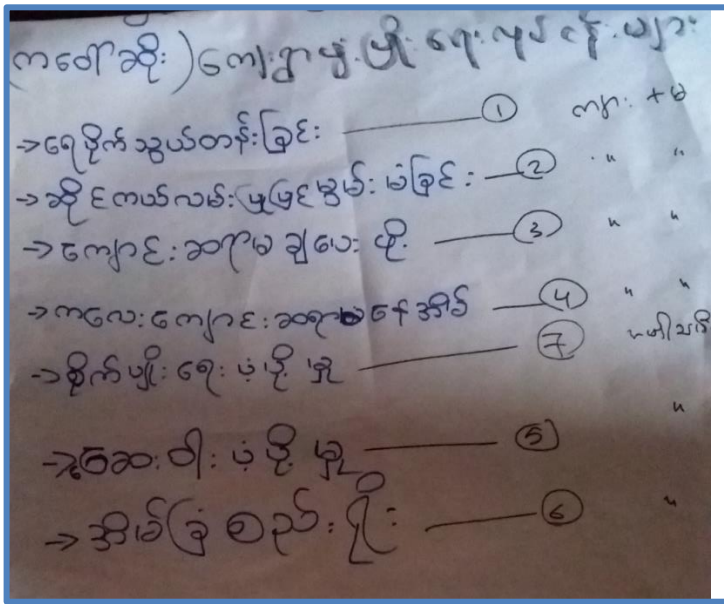 (ကဒေါ်ဆိုး) ကျေးရွာဖွံ့ဖြိုးရေးလုပ်ငန်းများ
→ရေပိုက်သွယ်တန်းခြင်း ① ကျား + မ
→ဆိုင်ကယ်လမ်းပြုပြင်မွမ်းမံခြင်း ② " "
→ကျောင်းဆရာမ ချပေးဖို့ ③ " "
→ကလေးကျောင်းဆရာမနေအိမ် ④ " "
→စိုက်ပျိုးရေးပံ့ပိုးမှု ⑦
→ဆေးဝါးပံ့ပိုးမှု ⑤ "
→အိမ်ခြံစည်းရိုး ⑥ "